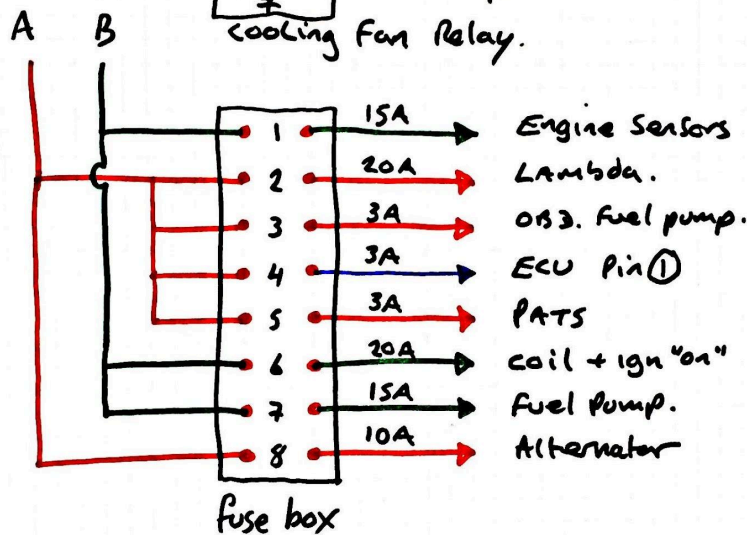 A B
7
cooling Fan Relay.
1 15A Engine Sensors
2 20A LAmbda.
3 3A OBD. Fuel pump.
4 3A ECU Pin ①
5 3A PATS
6 20A coil + ign "on"
7 15A fuel Pump.
8 10A Alternator
fuse box